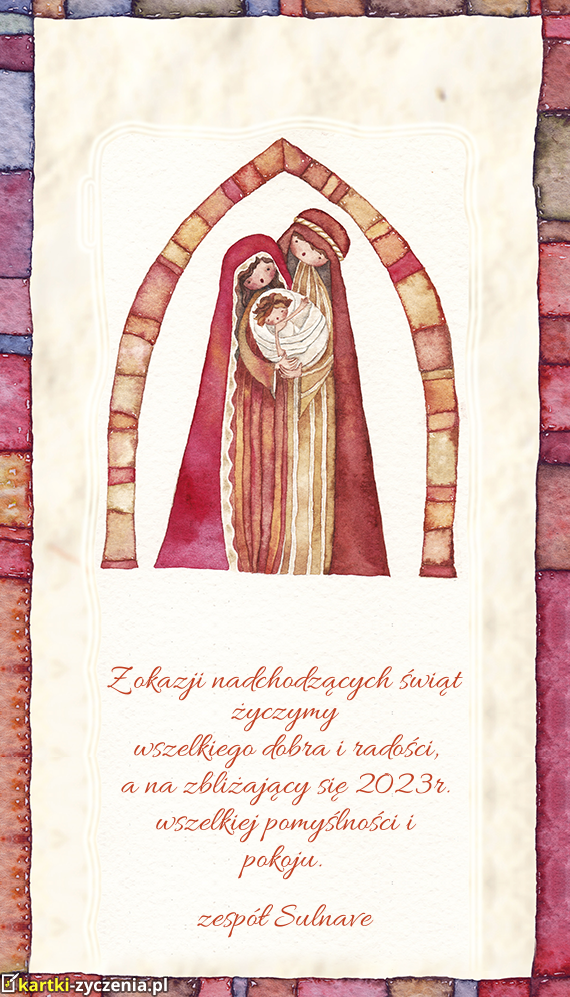 Z okazji nadchodzących świąt
życzymy
wszelkiego dobra i radości,
a na zbliżający się 2023r.
wszelkiej pomyślności i
pokoju.
zespół Sulnave
kartki-zyczenia.pl